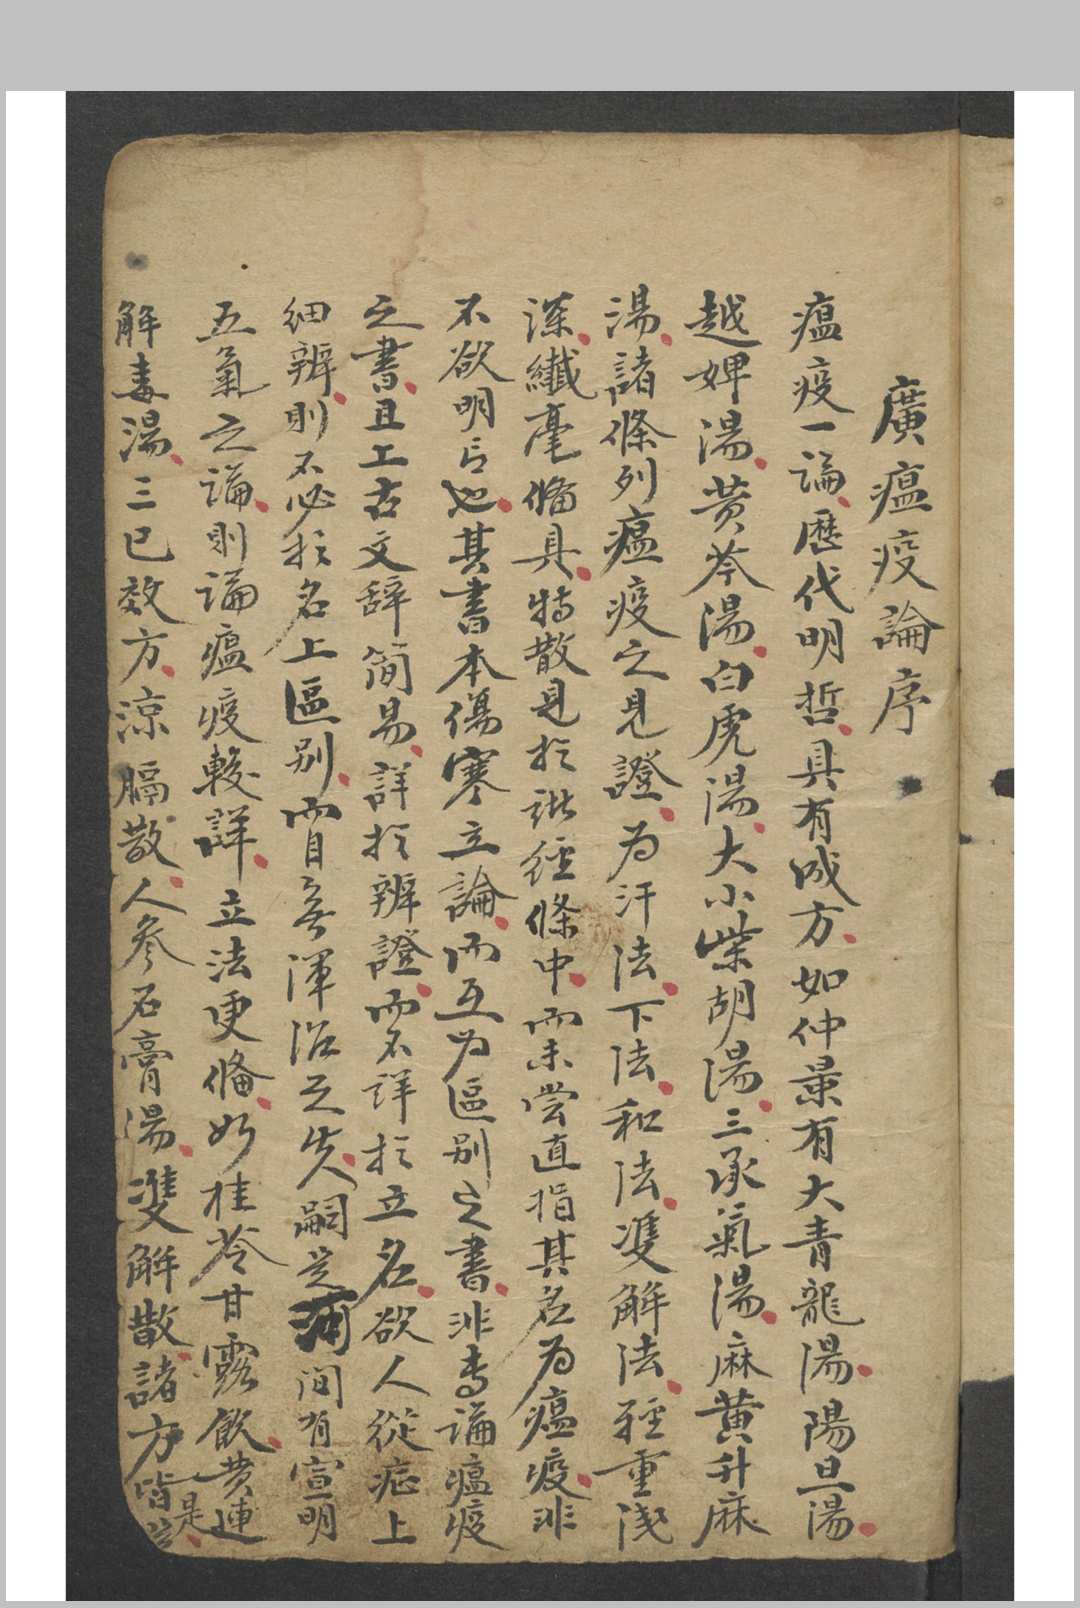 廣瘟疫論序
瘟疫一論歷代明哲具有成方如仲景有大青龍湯陽旦湯
越婢湯黃芩湯白虎湯大小柴胡湯三承氣湯麻黃升麻
湯諸條列瘟疫之見證為汗法下法和法雙解法輕重淺
深纖毫俻具特散見扵諸經條中而未嘗直指其名為瘟疫非
不欲明言也其書本傷寒立論而互為區别之書非專論瘟疫
之書且工古文辭簡易詳扵辨證而不詳扵立名欲人從症上
細辨則不必扵名上區别而自無渾淪之失嗣是間有宣明
五氣之論則論瘟疫較詳立法更俻如桂苓甘露飲黃連
解毒湯三已效方凉膈散人參石膏湯雙解散諸方皆是